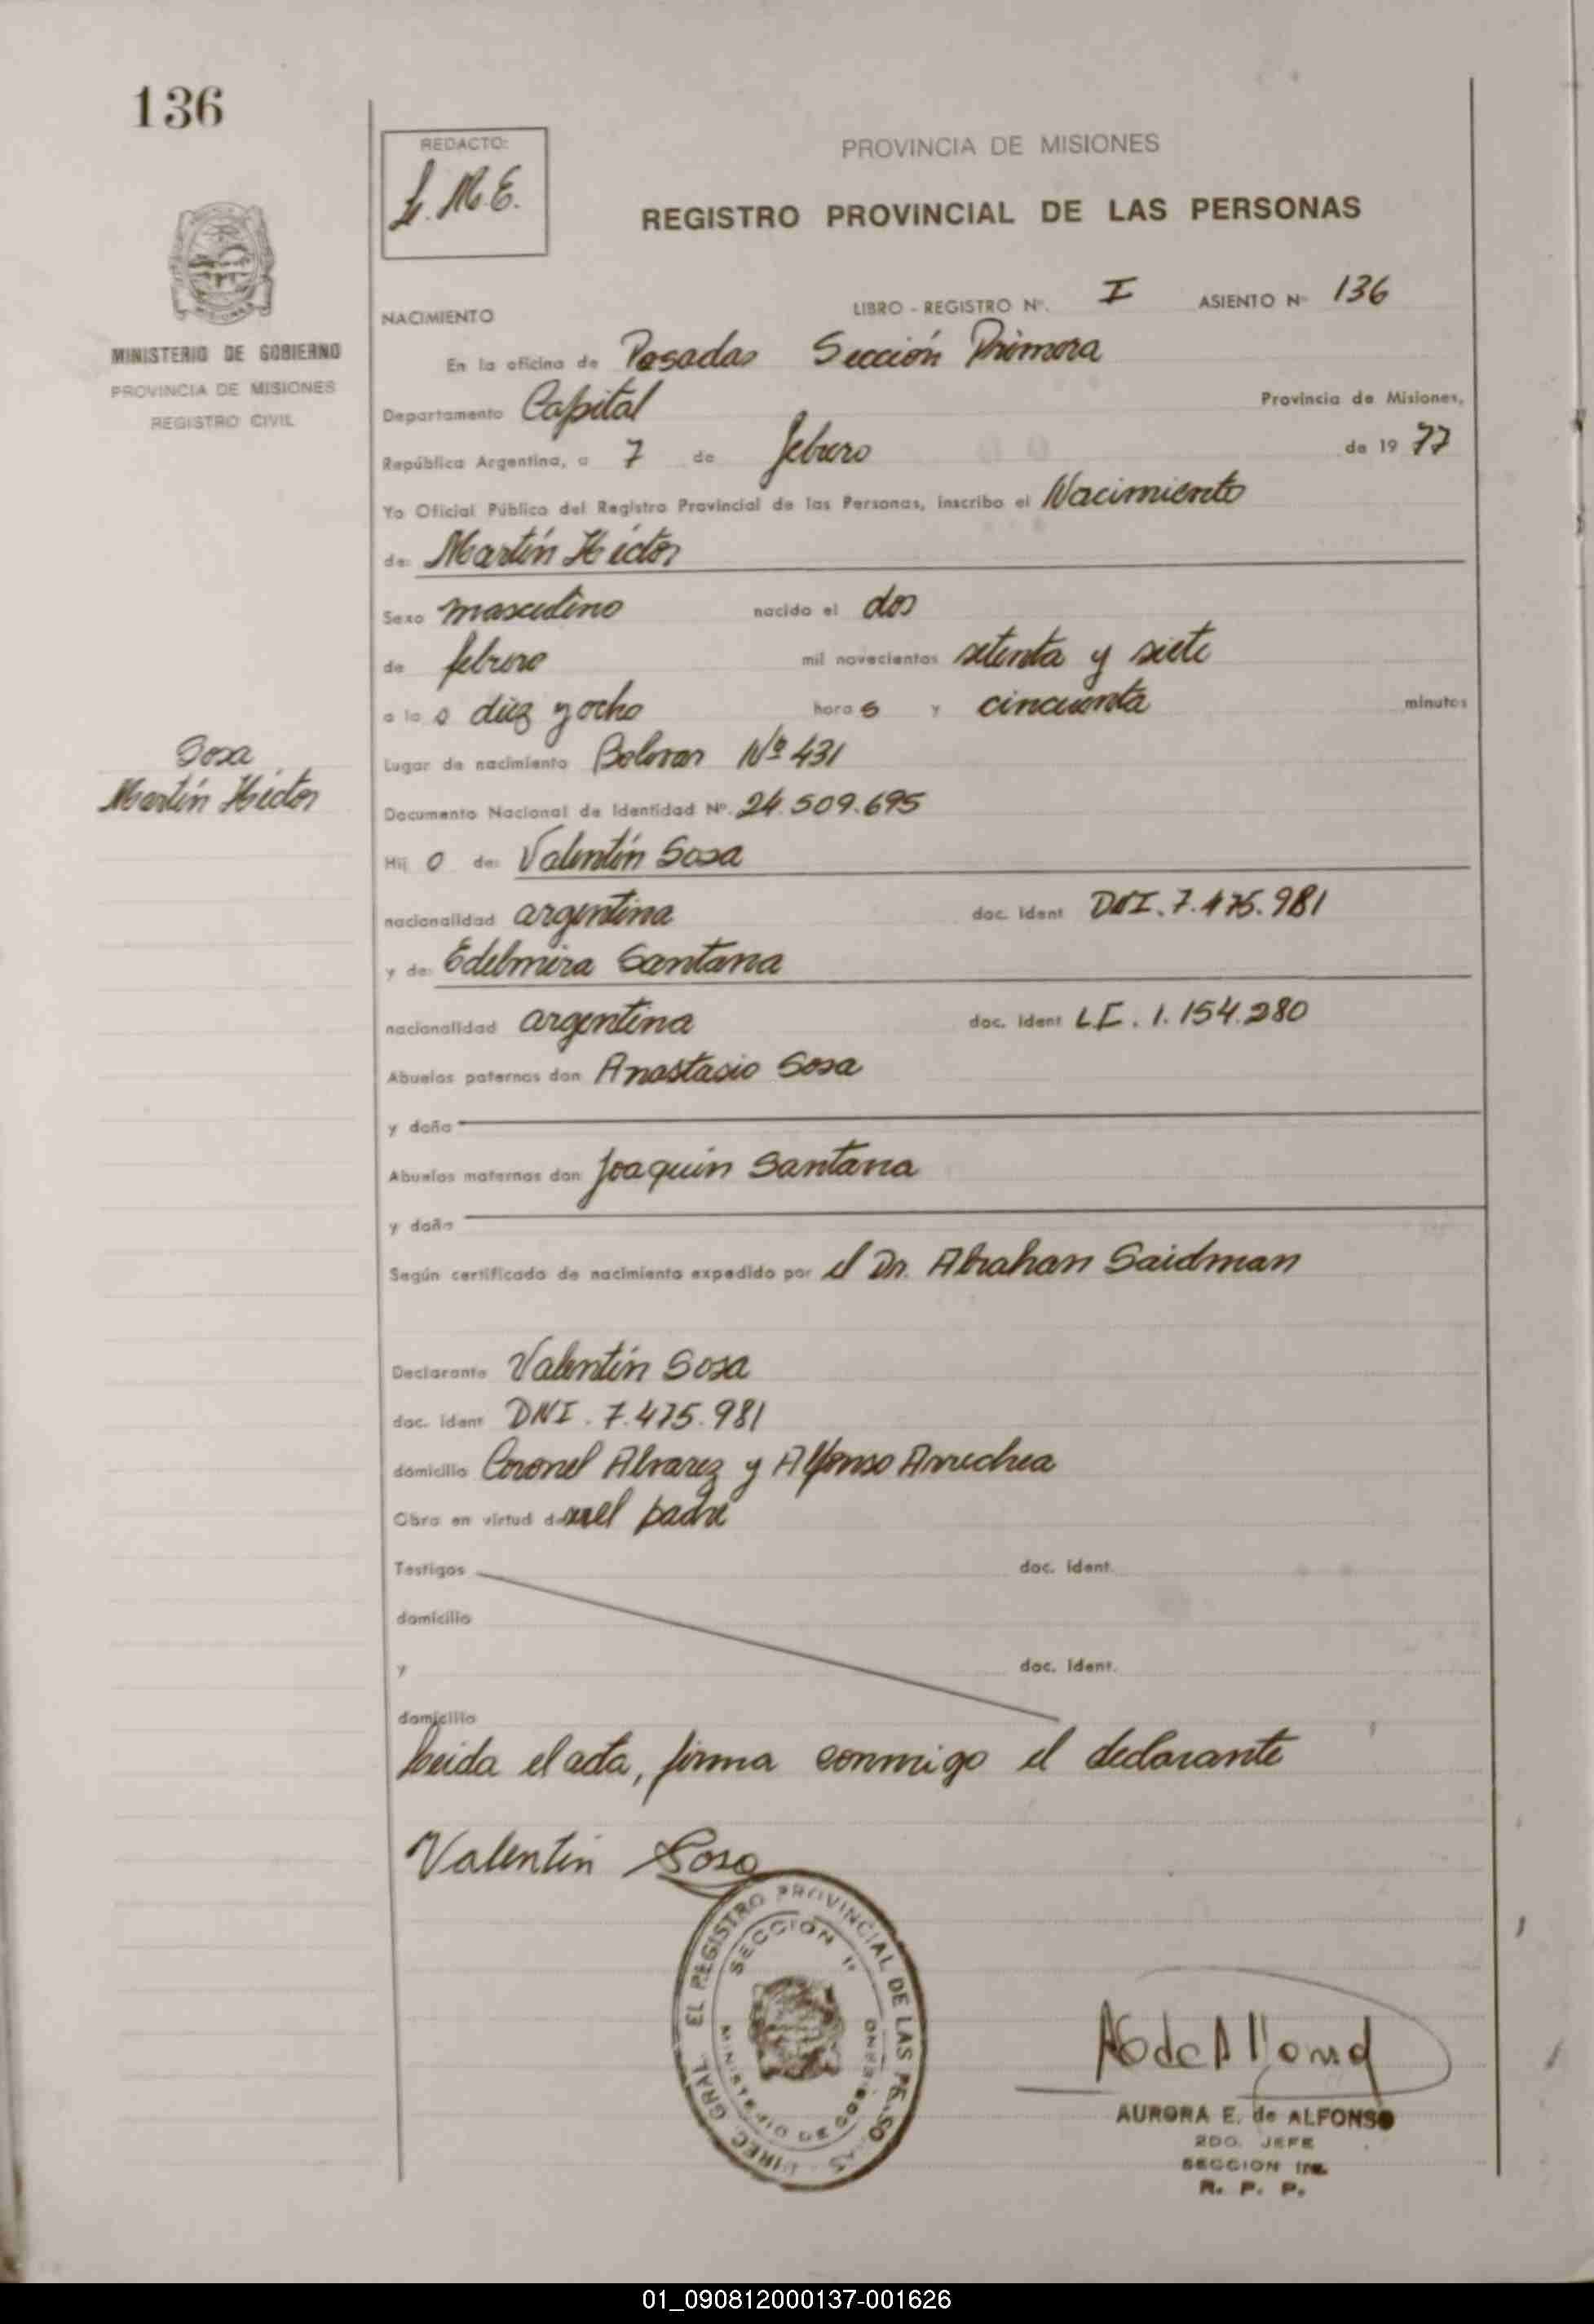 136
REDACTO:
L.M.E.
PROVINCIA DE MISIONES
REGISTRO PROVINCIAL DE LAS PERSONAS
MINISTERIO DE GOBIERNO
PROVINCIA DE MISIONES
REGISTRO CIVIL
NACIMIENTO LIBRO - REGISTRO Nº. I ASIENTO Nº 136
En la oficina de Posadas Sección Primera
Departamento Capital Provincia de Misiones,
República Argentina, a 7 de febrero de 19 77
Yo Oficial Público del Registro Provincial de las Personas, inscribo el Nacimiento
de: Martín Héctor
Sexo masculino nacido el dos
de febrero mil novecientos setenta y siete
a la s diez y ocho hora s y cincuenta minutos
Sosa
Martín Héctor
Lugar de nacimiento Bolivar Nº 431
Documento Nacional de Identidad Nº. 24.509.695
Hij o de: Valentín Sosa
nacionalidad argentina doc. ident DNI. 7.475.981
y de: Edelmira Santana
nacionalidad argentina doc. ident L.C. 1.154.280
Abuelos paternos don Anastasio Sosa
y doña
Abuelos maternos don Joaquín Santana
y doña
Según certificado de nacimiento expedido por el Dr. Abrahan Saidman
Declarante Valentín Sosa
doc. ident DNI. 7.475.981
domicilio Coronel Alvarez y Alfonso Arrechea
Obra en virtud de ser el padre
Testigos doc. ident.
domicilio
y doc. ident.
domicilio
Leida el acta, firma conmigo el declarante
Valentin Sosa
DIREC. GRAL. EL REGISTRO PROVINCIAL DE LAS PERSONAS
SECCION 1ª
MINISTERIO DE GOBIERNO
AURORA E. de ALFONSO
2DO. JEFE
SECCION 1ra.
R. P. P.
01_090812000137-001626